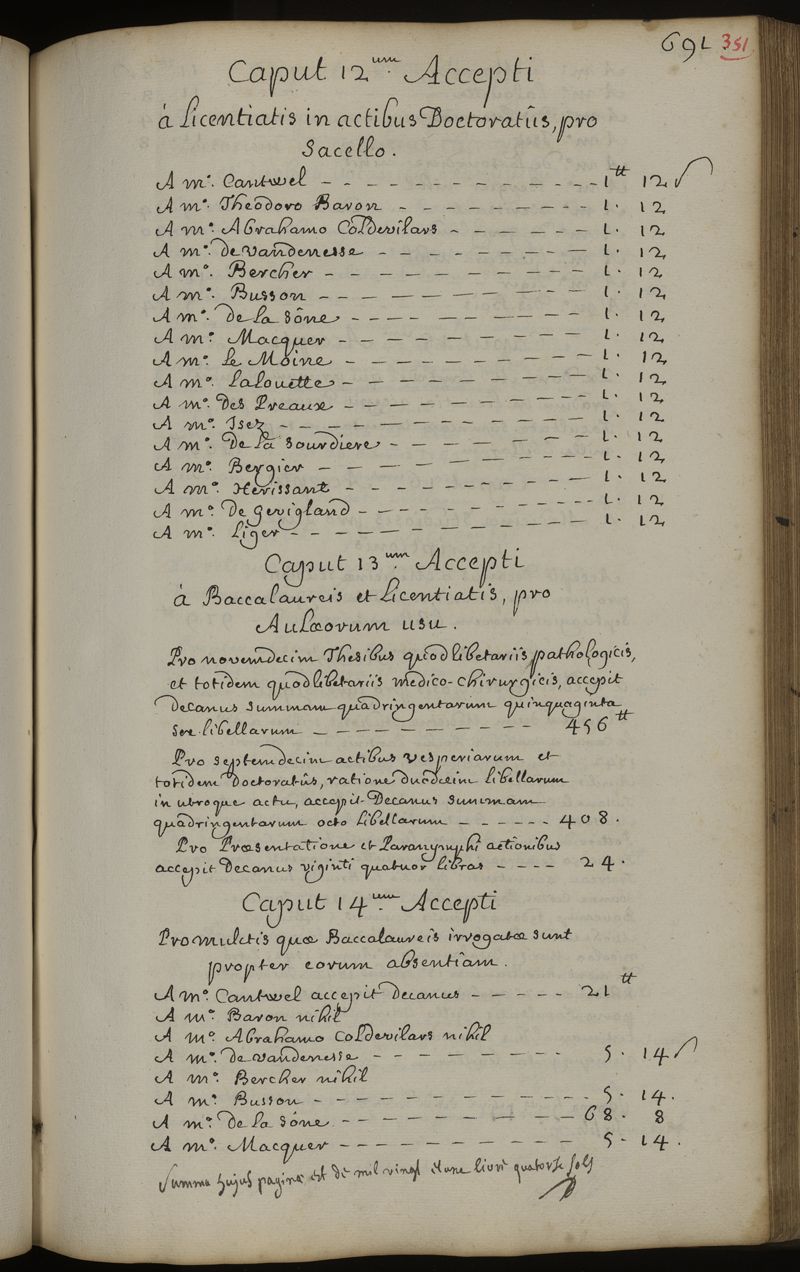 691 351
Caput 12.um Accepti
à Licentiatis in actibus Doctoratûs, pro
Sacello.
A mo. Cantwel - - - - - - - - - - - - 1.tt 12 s
A mo. Theodoro Baron - - - - - - - - - 1. 12
A mo. Abrahamo Coldevilars - - - - - - - 1. 12
A mo. de Vandenesse - - - - - - - - - 1. 12
A mo. Bercher - - - - - - - - - - - 1. 12
A mo. Busson - - - - - - - - - - - 1. 12
A mo. De la Sône - - - - - - - - - - 1. 12
A mo. Macquer - - - - - - - - - - 1. 12
A mo. Le Moine - - - - - - - - - - 1. 12
A mo. Lalouette - - - - - - - - - - 1. 12
A mo. Des Preaux - - - - - - - - - - 1. 12
A mo. Isez - - - - - - - - - - - - 1. 12
A mo. De La Sourdiere - - - - - - - - 1. 12
A mo. Bergier - - - - - - - - - - - 1. 12
A mo. Herissant - - - - - - - - - - 1. 12
A mo. De Gevigland - - - - - - - - - 1. 12
A mo. Liger - - - - - - - - - - - - 1. 12
Caput 13.um Accepti
à Baccalaureis et Licentiatis, pro
Aulæorum usu.
Pro novemdecim Thesibus quodlibetariis pathologicis,
et totidem quodlibetariis medico-chirurgicis, accepit
Decanus summam quadringentarum quinquaginta
sex libellarum - - - - - - - - - - 456 tt
Pro septemdecim actibus vesperiarum et
totidem Doctoratûs, ratione duodecim libellarum
in utroque actu, accepit Decanus summam
quadringentarum octo libellarum - - - - - - 408.
Pro Præsentatione et Paranymphi actionibus
accepit Decanus viginti quatuor libras - - - - 24.
Caput 14.um Accepti
Pro mulctis quæ Baccalaureis irrogatæ sunt
propter eorum absentiam.
A mo. Cantwel accepit Decanus - - - - - 21 tt
A mo. Baron nihil
A mo. Abrahamo Coldevilars nihil
A mo. de Vandenesse - - - - - - - - - 5. 14 s
A mo. Bercher nihil
A mo. Busson - - - - - - - - - - - 5. 14.
A mo. De la Sône - - - - - - - - - - 68. 8
A mo. Macquer - - - - - - - - - - 5. 14.
Summa hujus paginæ est de mil vingt et une livre quatorze sols